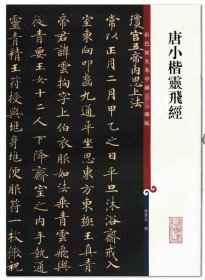 唐小楷靈飛經
彩色放大本中國碑帖
瓊宮五帝內思上法
常以正月二月甲乙之日平旦沐浴齋戒入
室東向叩齒九通平坐思東方東極玉真青
帝君諱雲拘字上伯衣服如法乘青雲飛輿
從青要玉女十二人下降齋室之內手執通
精玉符授與兆身便服符一枚微祝
編